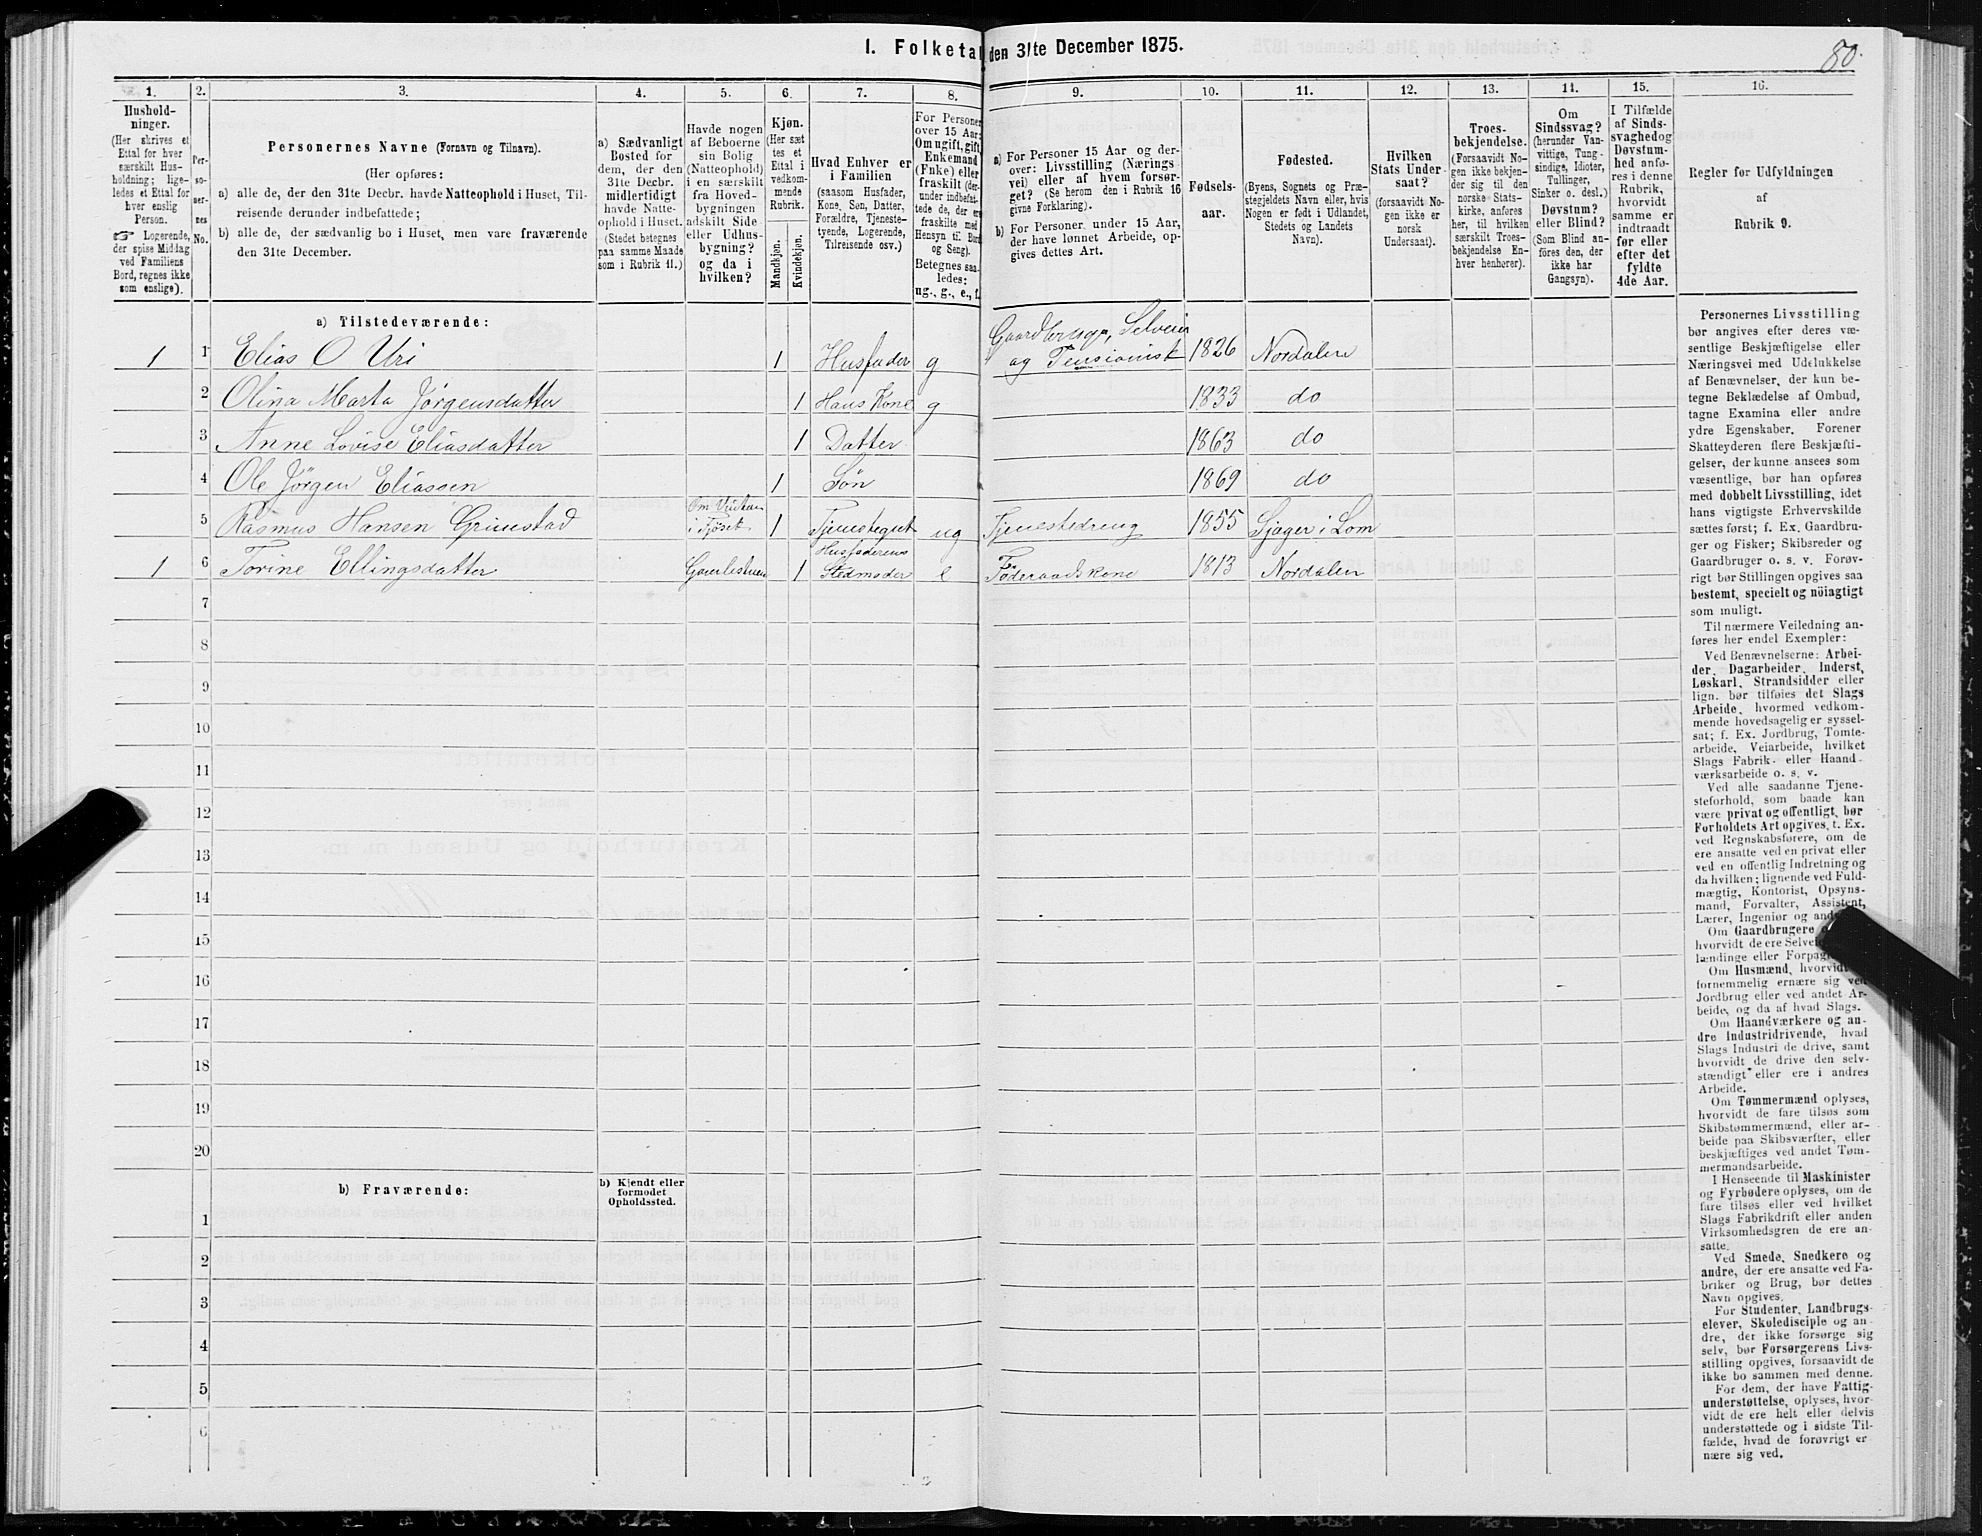 I. Folketal den 31te December 1875.
80.
1.
2.
3.
4.
5.
6.
7.
8.
9.
10.
11.
12.
13.
14.
15.
16.
Hushold-
ninger.
(Her skrives et
Ettal for hver
særskilt Hus-
holdning; lige-
ledes et Ettal for
hver enslig
Person.
☞ Logerende,
der spise Middag
ved Familiens
Bord, regnes ikke
som enslige).
Per-
so-
ner-
nes
No.
Personernes Navne (Fornavn og Tilnavn).
(Her opføres:
a) alle de, der den 31te Decbr. havde Natteophold i Huset, Til-
reisende derunder indbefattede;
b) alle de, der sædvanlig bo i Huset, men vare fraværende
den 31te December.
a) Sædvanligt
Bosted for
dem, der den
31te Decbr.
midlertidigt
havde Natte-
ophold i Huset.
(Stedet betegnes
paa samme Maade
som i Rubrik 11.)
Havde nogen
af Beboerne
sin Bolig
(Natteophold)
i en særskilt
fra Hoved-
bygningen
adskilt Side-
eller Udhus-
bygning?
og da i
hvilken?
Kjøn.
(Her sæt-
tes et
Ettal i
vedkom-
mende
Rubrik.
Mandkjøn.
Kvindekjøn.
Hvad Enhver er
i Familien
(saasom Husfader,
Kone, Søn, Datter,
Forældre, Tjeneste-
tyende, Logerende,
Tilreisende osv.)
For Personer
over 15 Aar:
Om ugift, gift,
Enkemand
(Enke) eller
fraskilt (der-
under indbefat-
tede de, der ere
fraskilte med
Hensyn til Bord
og Seng).
Betegnes saa-
ledes:
ug., g., e., f.
a) For Personer 15 Aar og der-
over: Livsstilling (Nærings-
vei) eller af hvem forsør-
get? (Se herom den i Rubrik 16
givne Forklaring).
b) For Personer under 15 Aar,
der have lønnet Arbeide, op-
gives dettes Art.
Fødsels-
aar.
Fødested.
(Byens, Sognets og Præ-
stegjeldets Navn eller, hvis
Nogen er født i Udlandet,
Stedets og Landets
Navn).
Hvilken
Stats Under-
saat?
(forsaavidt No-
gen ikke er
norsk
Undersaat).
Troes-
bekjendelse.
(Forsaavidt No-
gen ikke bekjen-
der sig til den
norske Stats-
kirke, anføres
her, til hvilken
særskilt Troes-
bekjendelse En-
hver henhører).
Om
Sindssvag?
(herunder Van-
vittige, Tung-
sindige, Idioter,
Tullinger,
Sinker o. desl.)
Døvstum?
eller Blind?
(Som Blind an-
føres den, der
ikke har
Gangsyn).
I Tilfælde
af Sinds-
svaghed og
Døvstum-
hed anfø-
res i denne
Rubrik,
hvorvidt
samme er
indtraadt
før eller
efter det
fyldte
4de Aar.
Regler for Udfyldningen
af
Rubrik 9.
a) Tilstedeværende:
1 1 Elias O Uri 1 Husfader g Gaardbruger, Selveier og Pensionist 1826 Nordalen
2 Olina Marta Jørgensdatter 1 Hans Kone g 1833 do
3 Anne Lovise Eliasdatter 1 Datter 1863 do
4 Ole Jørgen Eliassen 1 Søn 1869 do
5 Rasmus Hansen Grimstad Om Vinteren i Fjøset 1 Tjenestegut ug Tjenestedreng 1855 Sjager i Lom
1 6 Torine Ellingsdatter 1 Husfaderens Stedmoder e Føderaadskone 1813 Nordalen
7
8
9
10
11
12
13
14
15
16
17
18
19
20
b) Fraværende:
b) Kjendt eller
formodet
Opholdssted.
1
2
3
4
5
6
Personernes Livsstilling
bør angives efter deres væ-
sentlige Beskjæftigelse eller
Næringsvei med Udelukkelse
af Benævnelser, der kun be-
tegne Beklædelse af Ombud,
tagne Examina eller andre
ydre Egenskaber. Forener
Skatteyderen flere Beskjæfti-
gelser, der kunne ansees som
væsentlige, bør han opføres
med dobbelt Livsstilling, idet
hans vigtigste Erhvervskilde
sættes først; f. Ex. Gaardbru-
ger og Fisker; Skibsreder og
Gaardbruger o. s. v. Forøv-
rigt bør Stillingen opgives saa
bestemt, specielt og nöiagtigt
som muligt.
Til nærmere Veiledning an-
føres her endel Exempler:
Ved Benævnelserne: Arbei-
der, Dagarbeider, Inderst,
Løskarl, Strandsidder eller
lign. bør tilføies det Slags
Arbeide, hvormed vedkom-
mende hovedsagelig er syssel-
sat; f. Ex. Jordbrug, Tomte-
arbeide, Veiarbeide, hvilket
Slags Fabrik- eller Haand-
værksarbeide o. s. v.
Ved alle saadanne Tjene-
steforhold, som baade kan
være privat og offentligt, bør
Forholdets Art opgives, t. Ex.
ved Regnskabsførere, om de
ere ansatte ved en privat eller
ved en offentlig Indretning og
da hvilken; lignende ved Fuld-
mægtig, Kontorist, Opsyns-
mand, Forvalter, Assistent,
Lærer, Ingeniør og
Om Gaardbrugere
hvorvidt de ere
lændinge eller
Om Husmænd,
fornemmelig ernære sig ved
Jordbrug eller ved andet Ar-
beide, og da af hvad Slags.
Om Haandværkere og an-
dre Industridrivende, hvad
Slags Industri de drive, samt
hvorvidt de drive den selv-
stændigt eller ere i andres
Arbeide.
Om Tømmermænd oplyses,
hvorvidt de fare tilsøs som
Skibstømmermænd, eller ar-
beide paa Skibsværfter, eller
beskjæftiges ved andet Tøm-
mermandsarbeide.
I Henseende til Maskinister
og Fyrbødere oplyses, om de
fare tilsøs eller ved hvilket
Slags Fabrikdrift eller anden
Virksomhedsgren de ere an-
satte.
Ved Smede, Snedkere og
andre, der ere ansatte ved Fa-
briker og Brug, bør dettes
Navn opgives.
For Studenter, Landbrugs-
elever, Skoledisciple og an-
dre, der ikke forsørge sig
selv, bør Forsørgerens Livs-
stilling opgives, forsaavidt de
ikke bo sammen med denne.
For dem, der have Fattig-
understøttelse, oplyses, hvor-
vidt de ere helt eller delvis
understøttede og i sidste Til-
fælde, hvad de forøvrigt er-
nære sig ved.